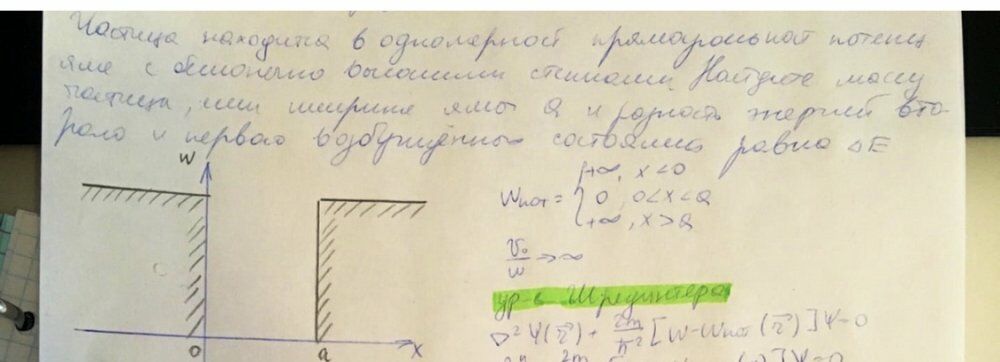 Частица находится в одномерной прямоугольной потенц
яме с бесконечно высокими стенками. Найдите массу
частицы, если ширина ямы a и разность энергий вто-
рого и первого возбуждённых состояний равна ΔE
W
Wпот = { +∞, x<0
0, 0<x<a
+∞, x>a
V₀/W → ∞
ур-е Шредингера
∇²Ψ(r⃗) + 2m/ħ² [W-Wпот(r⃗)]Ψ=0
0 a x